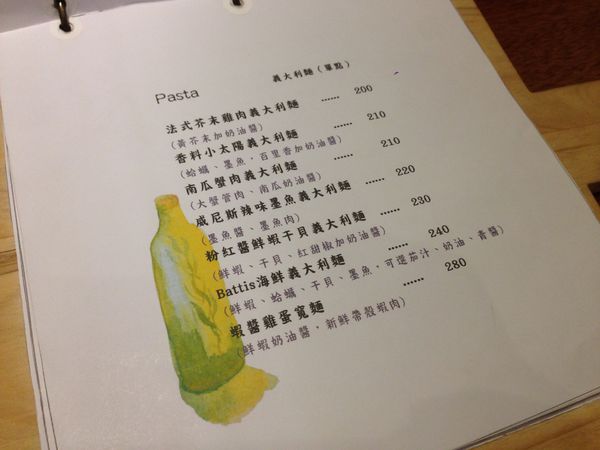 Pasta
義大利麵（單點）
法式芥末雞肉義大利麵 ...... 200
（黃芥末加奶油醬）
香料小太陽義大利麵 ...... 210
（蛤蠣、墨魚，百里香加奶油醬）
南瓜蟹肉義大利麵 ...... 210
（大蟹管肉、南瓜奶油醬）
威尼斯辣味墨魚義大利麵 ...... 220
（墨魚醬、墨魚肉）
粉紅醬鮮蝦干貝義大利麵 ...... 230
（鮮蝦、干貝、紅甜椒加奶油醬）
Battis海鮮義大利麵 ...... 240
（鮮蝦、蛤蠣、干貝、墨魚，可選茄汁、奶油、青醬）
蝦醬雞蛋寬麵 ...... 280
（鮮蝦奶油醬，新鮮帶殼蝦肉）